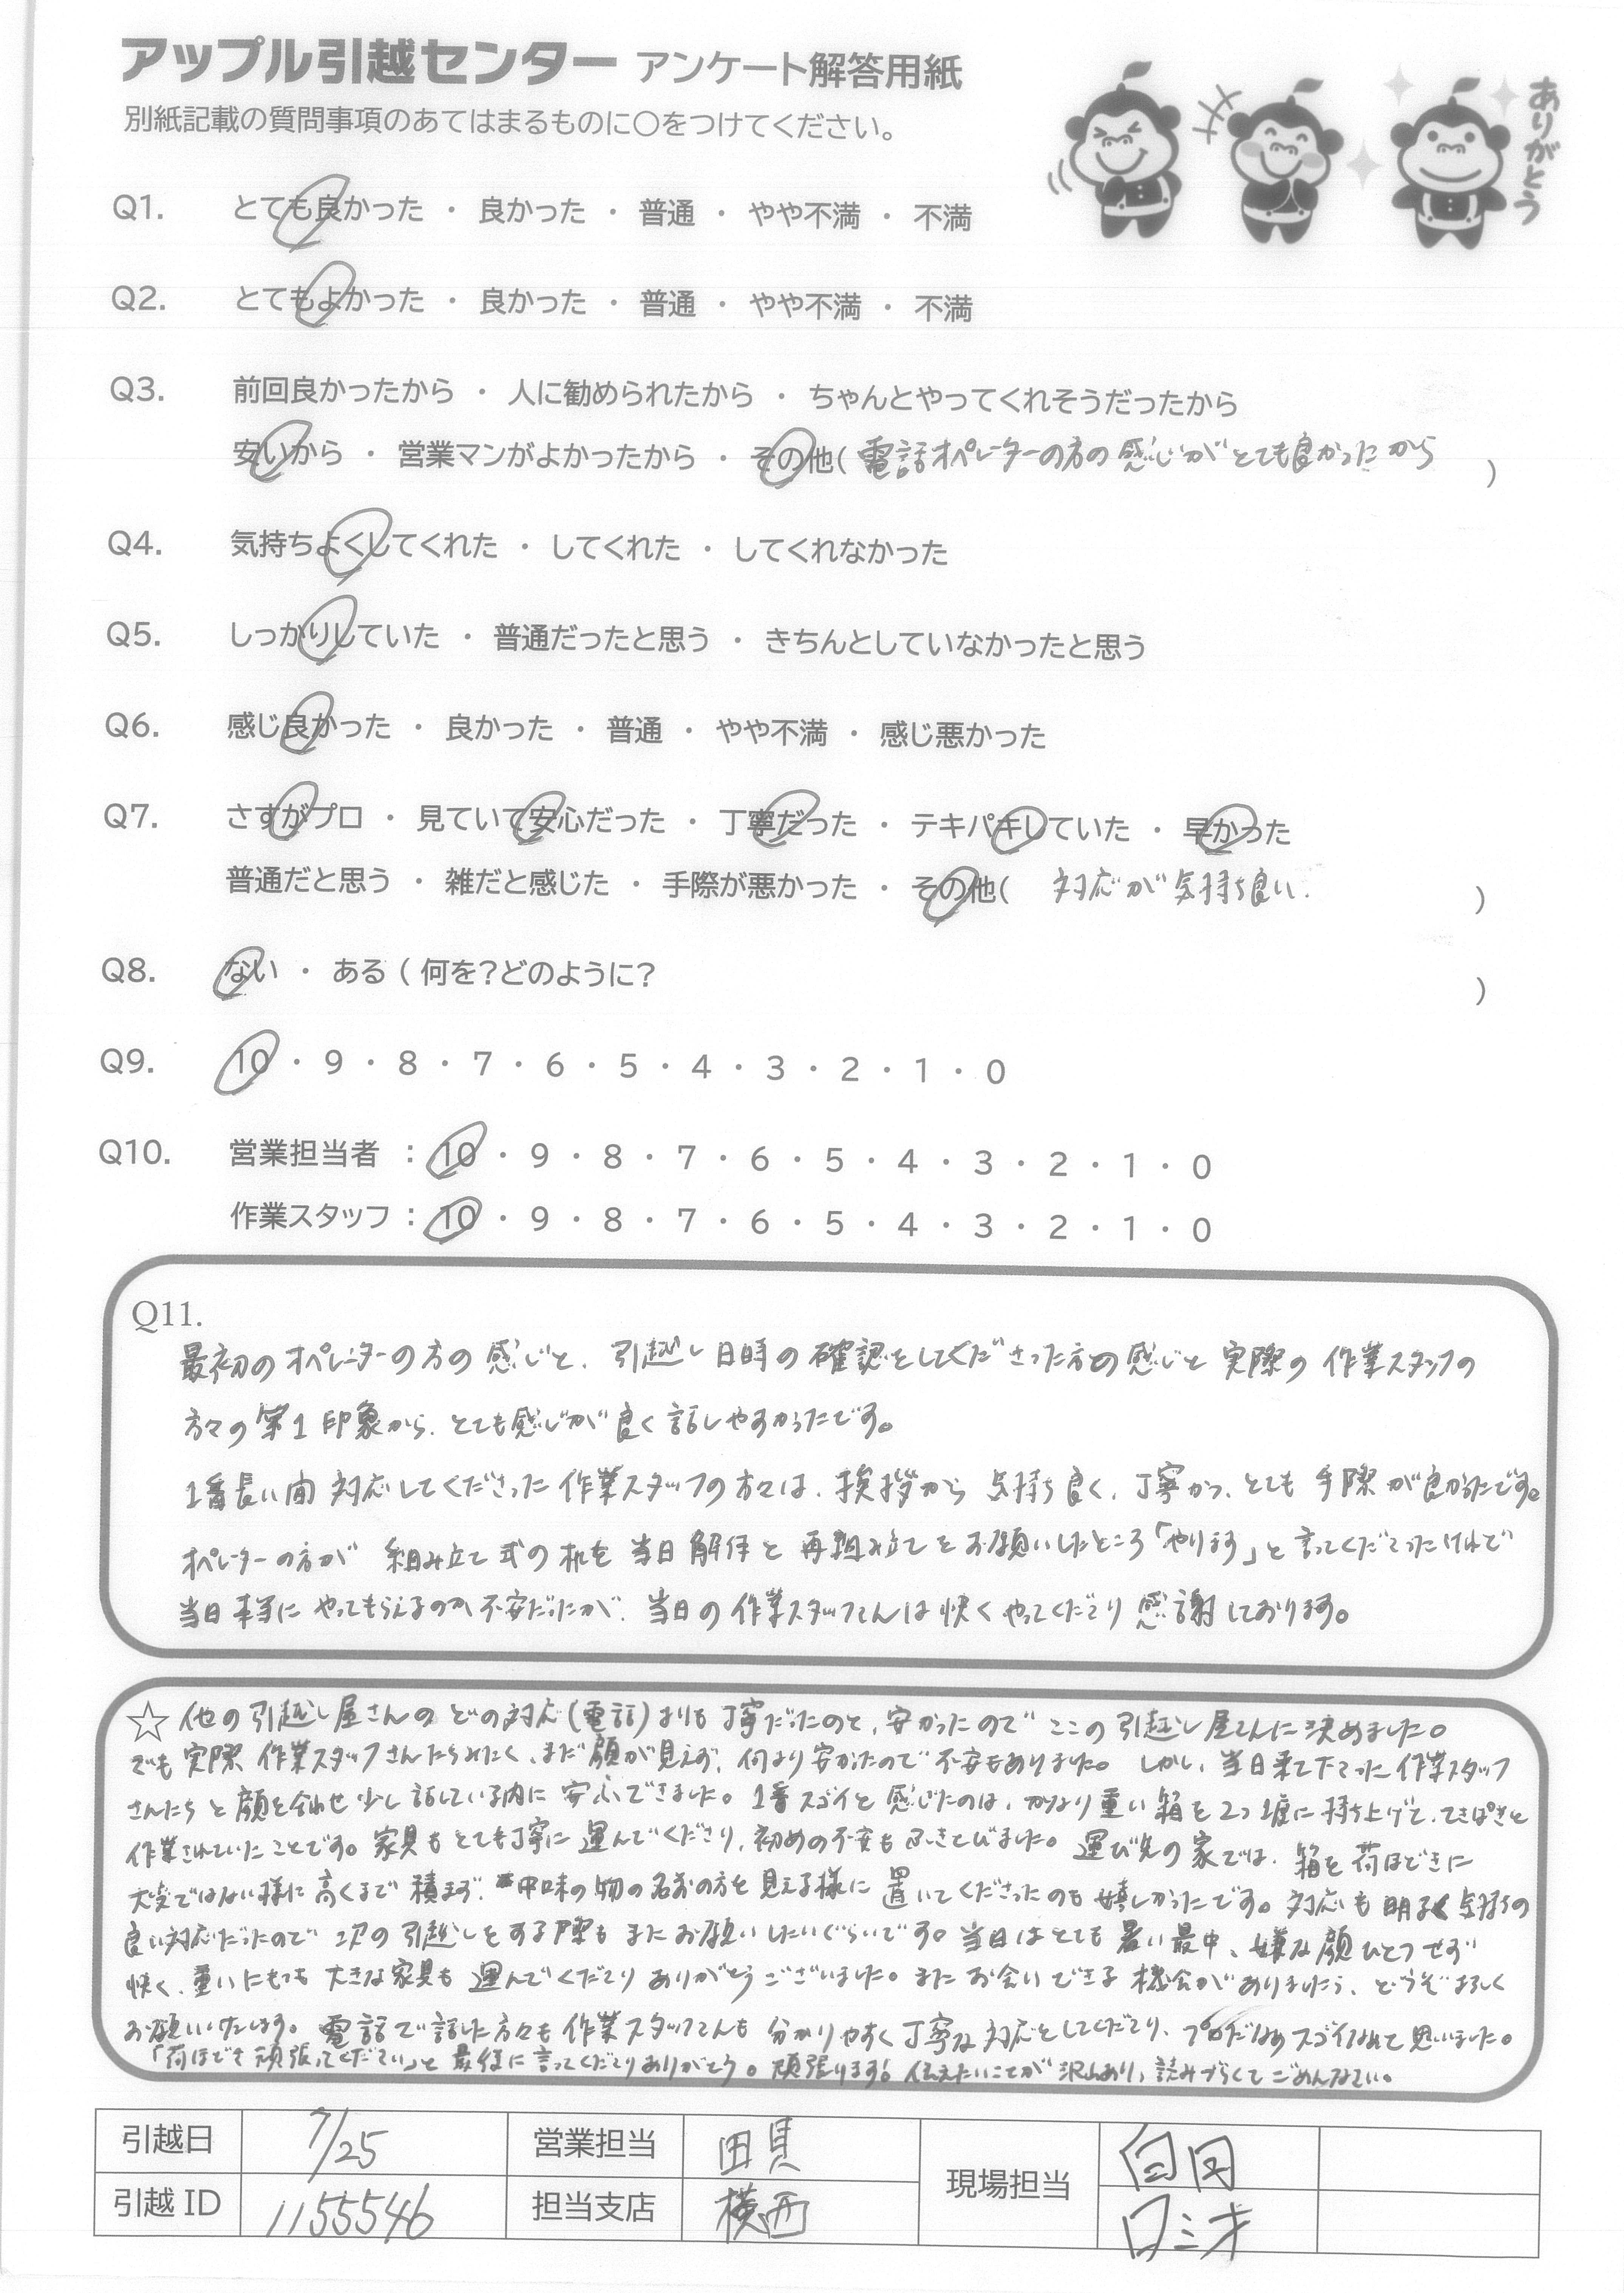 アップル引越センター アンケート解答用紙
別紙記載の質問事項のあてはまるものに○をつけてください。
ありがとう
Q1. とても良かった ・ 良かった ・ 普通 ・ やや不満 ・ 不満
Q2. とてもよかった ・ 良かった ・ 普通 ・ やや不満 ・ 不満
Q3. 前回良かったから ・ 人に勧められたから ・ ちゃんとやってくれそうだったから
安いから ・ 営業マンがよかったから ・ その他( 電話オペレーターの方の感じがとても良かったから )
Q4. 気持ちよくしてくれた ・ してくれた ・ してくれなかった
Q5. しっかりしていた ・ 普通だったと思う ・ きちんとしていなかったと思う
Q6. 感じ良かった ・ 良かった ・ 普通 ・ やや不満 ・ 感じ悪かった
Q7. さすがプロ ・ 見ていて安心だった ・ 丁寧だった ・ テキパキしていた ・ 早かった
普通だと思う ・ 雑だと感じた ・ 手際が悪かった ・ その他( 対応が気持ち良い. )
Q8. ない ・ ある ( 何を?どのように? )
Q9. 10 ・ 9 ・ 8 ・ 7 ・ 6 ・ 5 ・ 4 ・ 3 ・ 2 ・ 1 ・ 0
Q10. 営業担当者 : 10 ・ 9 ・ 8 ・ 7 ・ 6 ・ 5 ・ 4 ・ 3 ・ 2 ・ 1 ・ 0
作業スタッフ : 10 ・ 9 ・ 8 ・ 7 ・ 6 ・ 5 ・ 4 ・ 3 ・ 2 ・ 1 ・ 0
Q11.
最初のオペレーターの方の感じと、引越し日時の確認をしてくださった方の感じと実際の作業スタッフの
方々の第1印象から、とても感じが良く話しやすかったです。
1番長い間対応してくださった作業スタッフの方々は、挨拶から気持ち良く、丁寧かつ、とても手際が良かったです。
オペレーターの方が組み立て式の机を当日解体と再組み立てをお願いしたところ「やります」と言ってくださったけれど
当日本当にやってもらえるのか不安だったが、当日の作業スタッフさんは快くやってくださり感謝しております。
☆他の引越し屋さんのどの対応(電話)よりも丁寧だったのと、安かったのでここの引越し屋さんに決めました。
でも実際作業スタッフさんたちみたく、まだ顔が見えず、何より安かったので不安もありました。しかし、当日来て下さった作業スタッフ
さんたちと顔を合わせ少し話している内に安心できました。1番スゴイと感じたのは、かなり重い箱を2つ1度に持ち上げて、てきぱきと
作業されていたことです。家具もとても丁寧に運んでくださり、初めの不安もふきとびました。運び先の家では、箱を荷ほどきに
大変ではない様に高くまで積まず、中味の物の名前の方を見える様に置いてくださったのも嬉しかったです。対応も明るく気持ちの
良い対応だったので次の引越しをする際もまたお願いしたいぐらいです。当日はとても暑い最中、嫌な顔ひとつせず
快く、重いにもつも大きな家具も運んでくださりありがとうございました。またお会いできる機会がありましたら、どうぞよろしく
お願いいたします。電話で話した方々も作業スタッフさんも分かりやすく丁寧な対応をしてくださり、プロだなあスゴイなあと思いました。
「荷ほどき頑張ってください」と最後に言ってくださりありがとう。頑張ります!伝えたいことが沢山あり、読みづらくてごめんなさい。
引越日 7/25 営業担当 田貝 現場担当 白田
引越ID 1155546 担当支店 横西 ロミオ